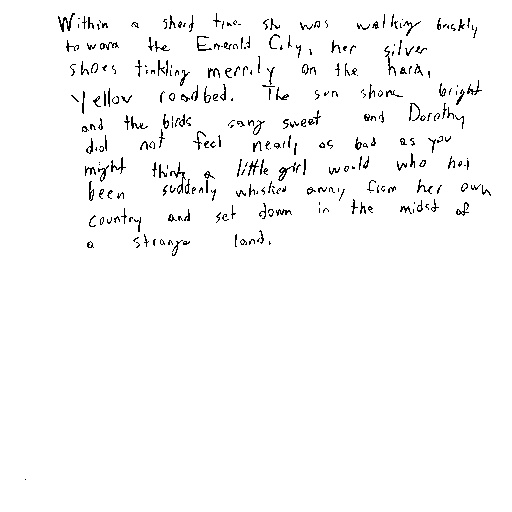 Within a short time she was walking briskly
toward the Emerald City, her silver
shoes tinkling merrily on the hard,
Yellow roadbed. The sun shone bright
and the birds sang sweet and Dorothy
did not feel nearly as bad as you
might think a little girl would who had
been suddenly whisked away from her own
country and set down in the midst of
a strange land.